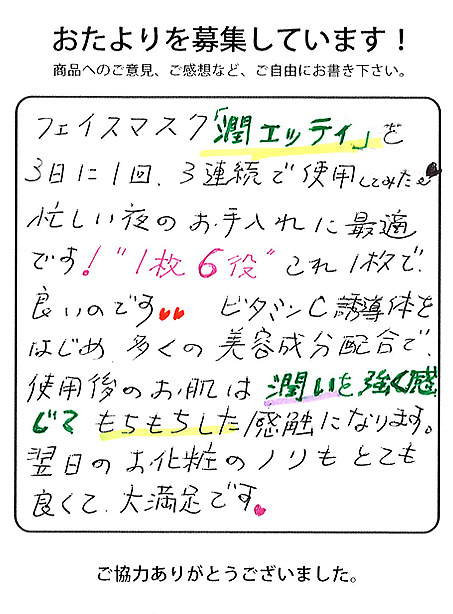 おたよりを募集しています！
商品へのご意見、ご感想など、ご自由にお書き下さい。
フェイスマスク「潤エッティ」を
3日に1回、3連続で使用してみた
忙しい夜のお手入れに最適
です！"1枚6役"これ1枚で、
良いのです♥♥ ビタミンC誘導体を
はじめ、多くの美容成分配合で、
使用後のお肌は潤いを強く感
じて もちもちした感触になります。
翌日のお化粧のノリもとても
良くて、大満足です。♥
ご協力ありがとうございました。